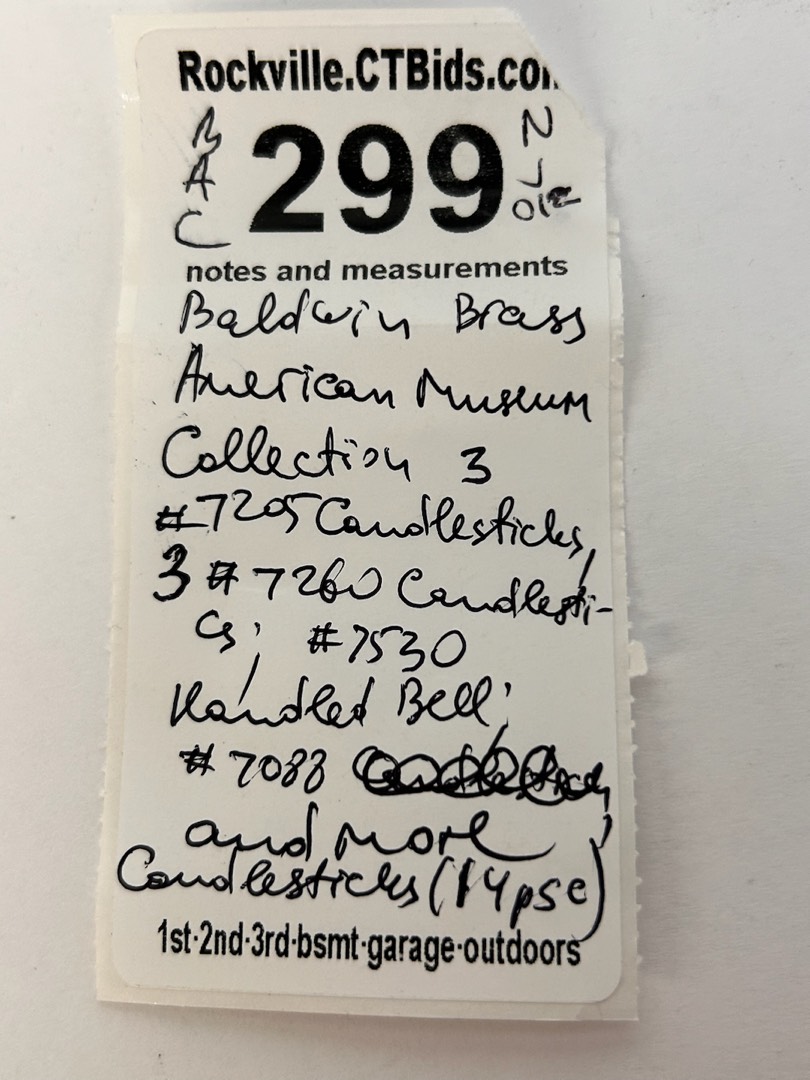 Rockville.CTBids.co
BAC
299
notes and measurements
Baldwin Brass
American Museum
Collection 3
#7205 Candlesticks,
3 #7260 Candlesti-
cs; #7530
Handled Bell;
#7088
and more
Candlesticks (14 pse)
1st·2nd·3rd·bsmt·garage·outdoors